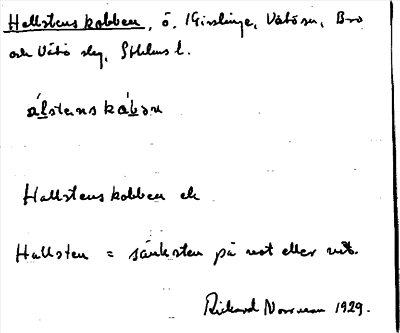 Hallstenskobben, ö. Gisslinge, Vätö sn, Bro
och Vätö slg, Sthlms l.
álstenskåbən
Hallstenskobben
Hallsten = sänksten på not eller nät.
Rikard Norrman 1929.